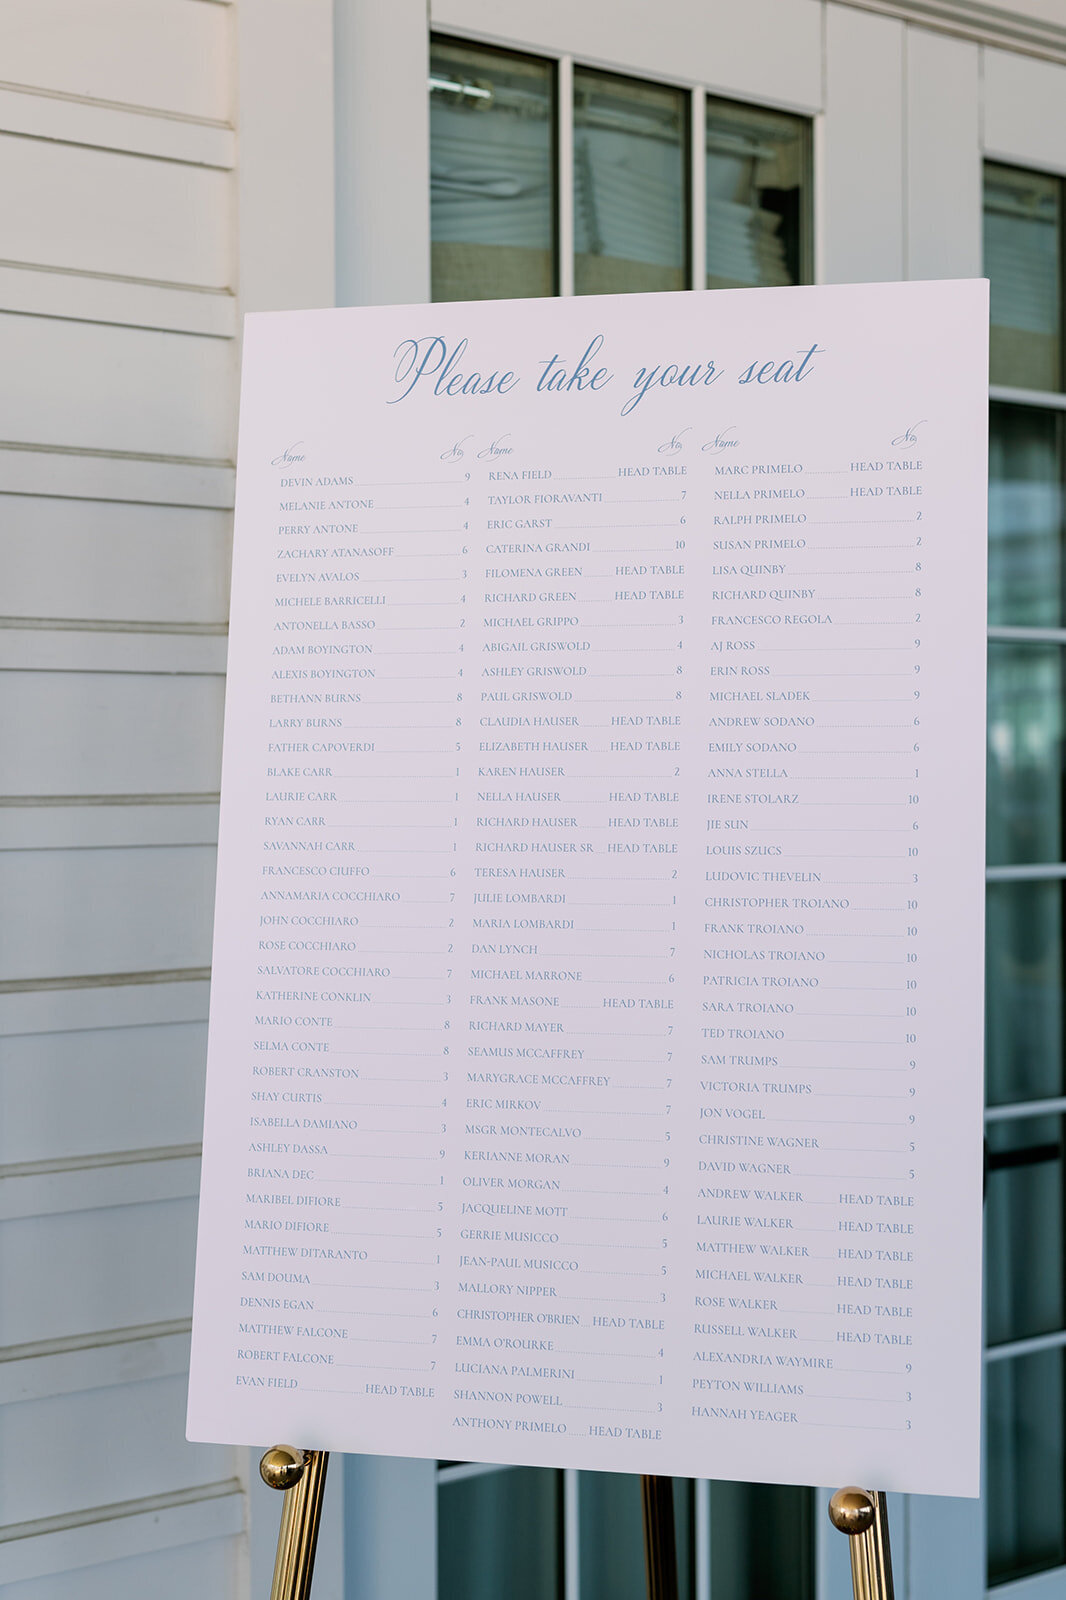 Please take your seat
Name No.
DEVIN ADAMS 9
MELANIE ANTONE 4
PERRY ANTONE 4
ZACHARY ATANASOFF 6
EVELYN AVALOS 3
MICHELE BARRICELLI 4
ANTONELLA BASSO 2
ADAM BOYINGTON 4
ALEXIS BOYINGTON 4
BETHANN BURNS 8
LARRY BURNS 8
FATHER CAPOVERDI 5
BLAKE CARR 1
LAURIE CARR 1
RYAN CARR 1
SAVANNAH CARR 1
FRANCESCO CIUFFO 6
ANNAMARIA COCCHIARO 7
JOHN COCCHIARO 2
ROSE COCCHIARO 2
SALVATORE COCCHIARO 7
KATHERINE CONKLIN 3
MARIO CONTE 8
SELMA CONTE 8
ROBERT CRANSTON 3
SHAY CURTIS 4
ISABELLA DAMIANO 3
ASHLEY DASSA 9
BRIANA DEC 1
MARIBEL DIFIORE 5
MARIO DIFIORE 5
MATTHEW DITARANTO 1
SAM DOUMA 3
DENNIS EGAN 6
MATTHEW FALCONE 7
ROBERT FALCONE 7
EVAN FIELD HEAD TABLE
Name No.
RENA FIELD HEAD TABLE
TAYLOR FIORAVANTI 7
ERIC GARST 6
CATERINA GRANDI 10
FILOMENA GREEN HEAD TABLE
RICHARD GREEN HEAD TABLE
MICHAEL GRIPPO 3
ABIGAIL GRISWOLD 4
ASHLEY GRISWOLD 8
PAUL GRISWOLD 8
CLAUDIA HAUSER HEAD TABLE
ELIZABETH HAUSER HEAD TABLE
KAREN HAUSER 2
NELLA HAUSER HEAD TABLE
RICHARD HAUSER HEAD TABLE
RICHARD HAUSER SR HEAD TABLE
TERESA HAUSER 2
JULIE LOMBARDI 1
MARIA LOMBARDI 1
DAN LYNCH 7
MICHAEL MARRONE 6
FRANK MASONE HEAD TABLE
RICHARD MAYER 7
SEAMUS MCCAFFREY 7
MARYGRACE MCCAFFREY 7
ERIC MIRKOV 7
MSGR MONTECALVO 5
KERIANNE MORAN 9
OLIVER MORGAN 4
JACQUELINE MOTT 6
GERRIE MUSICCO 5
JEAN-PAUL MUSICCO 5
MALLORY NIPPER 3
CHRISTOPHER O'BRIEN HEAD TABLE
EMMA O'ROURKE 4
LUCIANA PALMERINI 1
SHANNON POWELL 3
ANTHONY PRIMELO HEAD TABLE
Name No.
MARC PRIMELO HEAD TABLE
NELLA PRIMELO HEAD TABLE
RALPH PRIMELO 2
SUSAN PRIMELO 2
LISA QUINBY 8
RICHARD QUINBY 8
FRANCESCO REGOLA 2
AJ ROSS 9
ERIN ROSS 9
MICHAEL SLADEK 9
ANDREW SODANO 6
EMILY SODANO 6
ANNA STELLA 1
IRENE STOLARZ 10
JIE SUN 6
LOUIS SZUCS 10
LUDOVIC THEVELIN 3
CHRISTOPHER TROIANO 10
FRANK TROIANO 10
NICHOLAS TROIANO 10
PATRICIA TROIANO 10
SARA TROIANO 10
TED TROIANO 10
SAM TRUMPS 9
VICTORIA TRUMPS 9
JON VOGEL 9
CHRISTINE WAGNER 5
DAVID WAGNER 5
ANDREW WALKER HEAD TABLE
LAURIE WALKER HEAD TABLE
MATTHEW WALKER HEAD TABLE
MICHAEL WALKER HEAD TABLE
ROSE WALKER HEAD TABLE
RUSSELL WALKER HEAD TABLE
ALEXANDRIA WAYMIRE 9
PEYTON WILLIAMS 3
HANNAH YEAGER 3